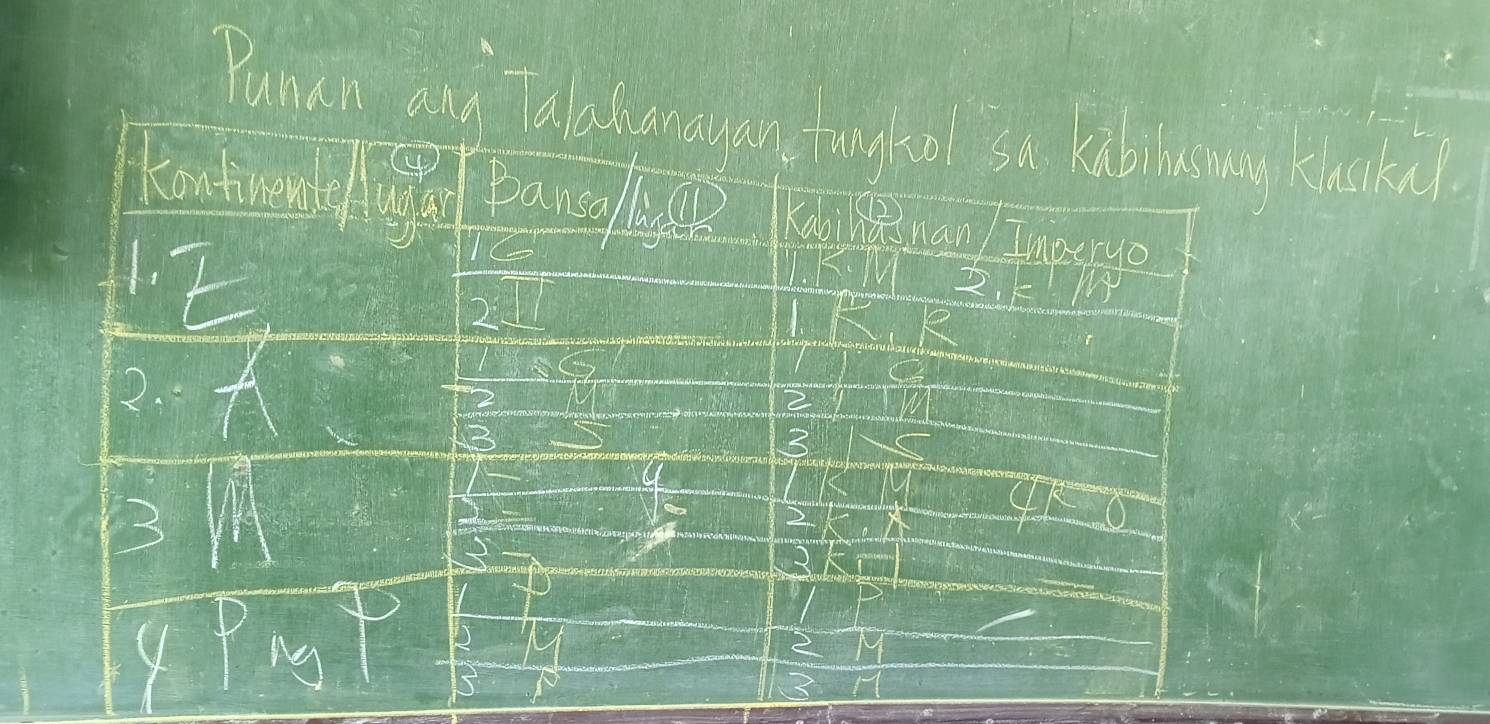 Punan ang Talahanayan tungkol sa kabihasnang klasikal
Kontinente/lugar (4) Bansa/lugar (11) Kabihasnan/Imperyo (12)
1. E 1 G 1. K. M 2. K M
2. I 1. K. R
2. A 1 G 1 I G
2 M 2 I M
3 S 3 I S
3 M 1 4 1 K M 4 K O
2 K. A
3 K H
4 P ng P 1 P 1 P
2 M 2 M
3 3 M